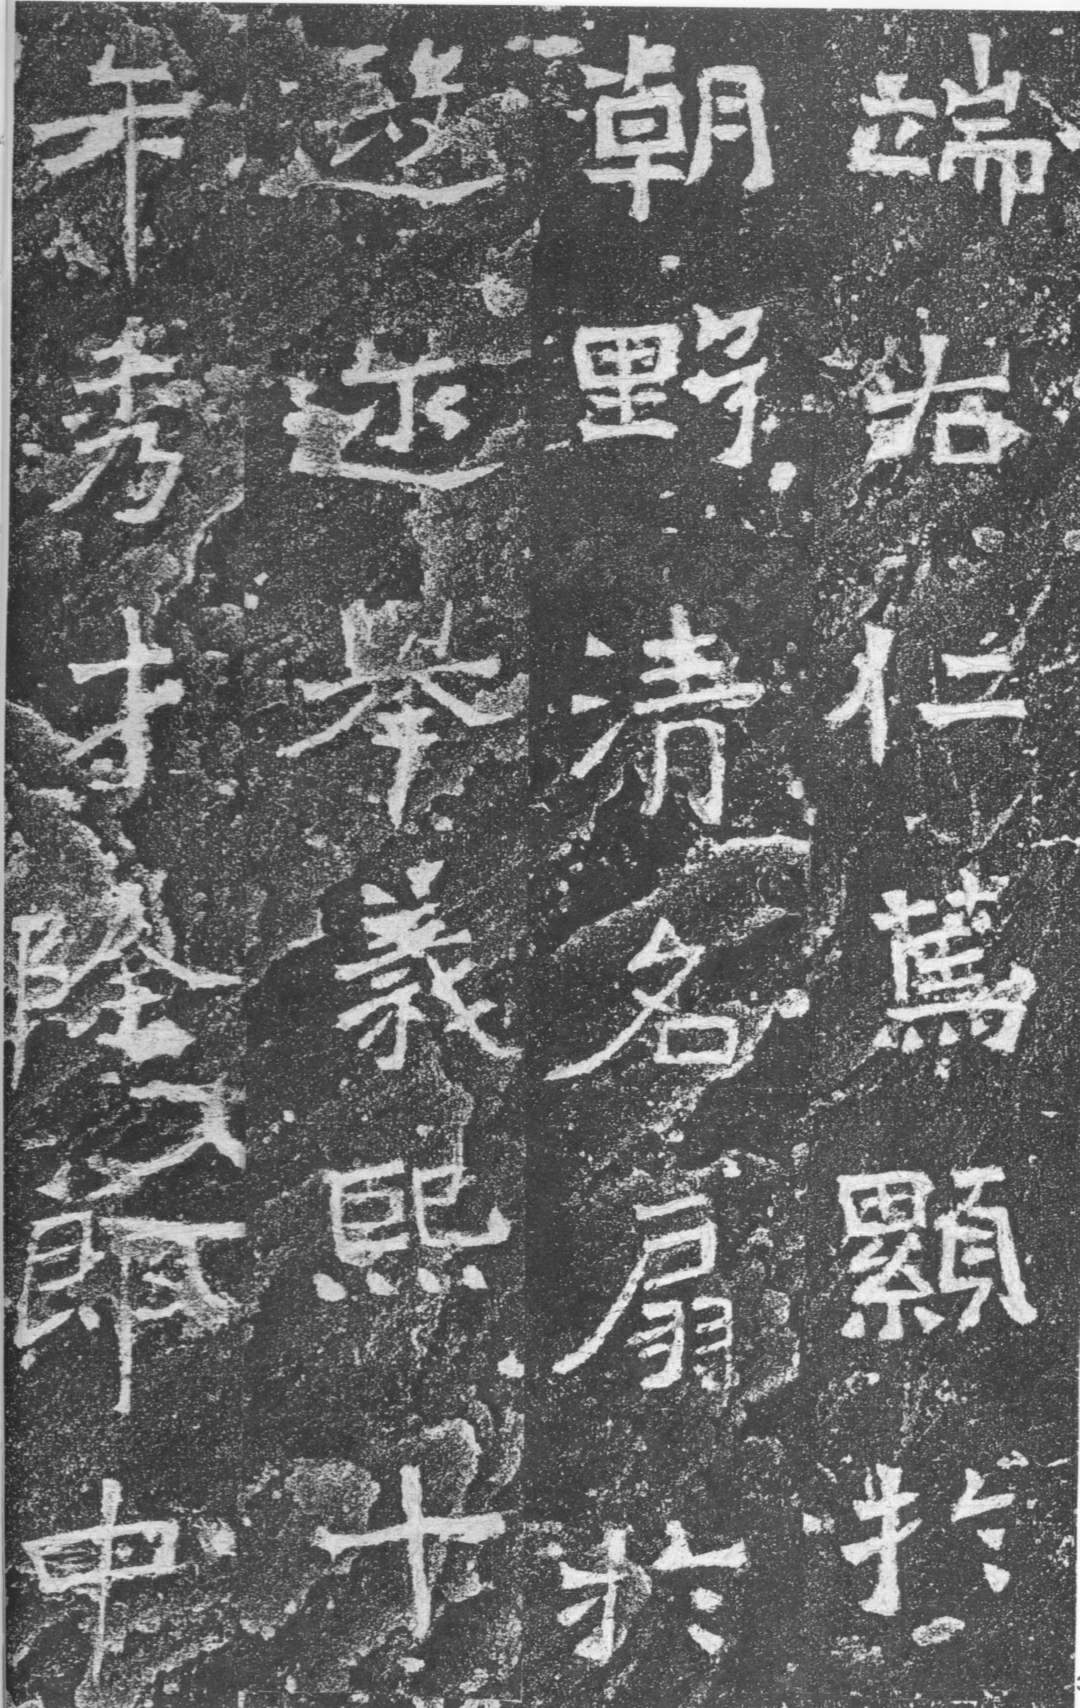 端右仁篤顯於
朝野清名扇於
遐迩舉義熙十
年秀才除郎中